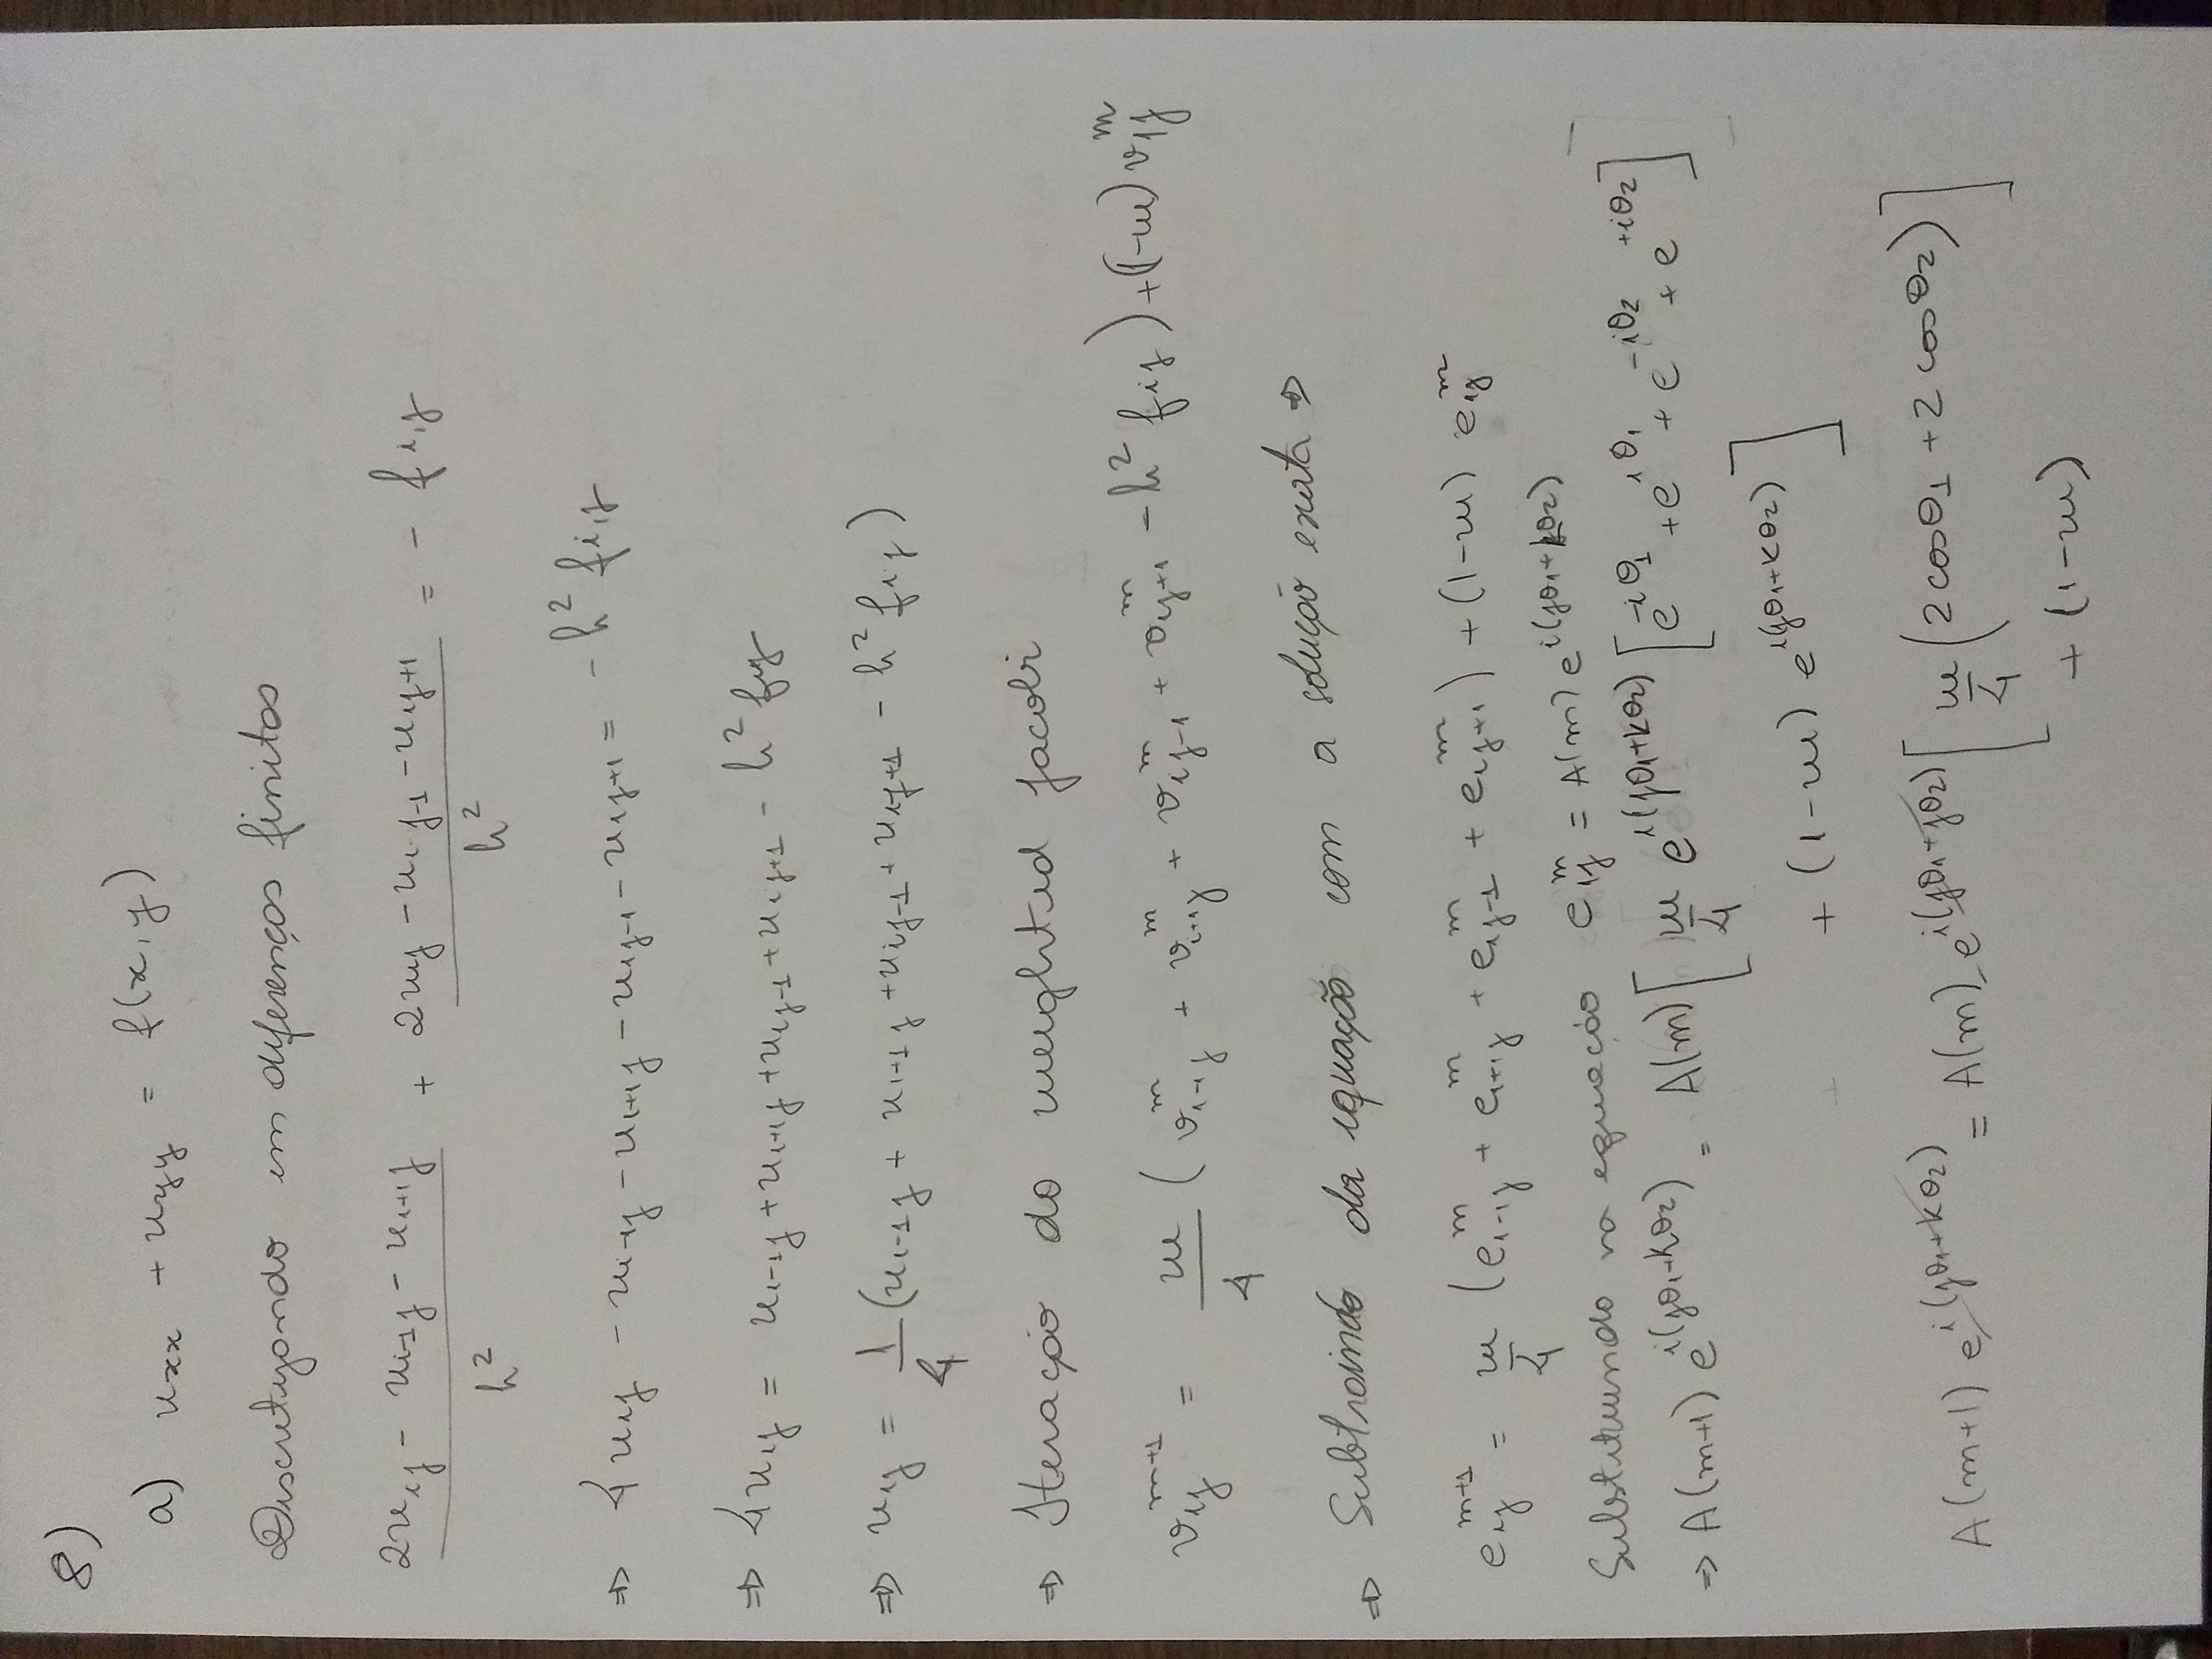 8)
a) u_xx + u_yy = f(x,y)
Discretizando em diferenças finitas
(2u_ij - u_i-1j - u_i+1j)/h² + (2u_ij - u_ij-1 - u_ij+1)/h² = - f_i,j
⇒ 4u_ij - u_i-1j - u_i+1j - u_ij-1 - u_ij+1 = -h² f_i,j
⇒ 4u_ij = u_i-1j + u_i+1j + u_ij-1 + u_ij+1 - h² f_ij
⇒ u_ij = 1/4 (u_i-1j + u_i+1j + u_ij-1 + u_ij+1 - h² f_ij)
⇒ Iteração do weighted jacobi
v_ij^(m+1) = w/4 (v_i-1j^m + v_i+1j^m + v_ij-1^m + v_ij+1^m - h² f_ij) + (1-w) v_ij^m
⇒ Subtraindo da equação com a solução exata ⇒
e_ij^(m+1) = w/4 (e_i-1j^m + e_i+1j^m + e_ij-1^m + e_ij+1^m) + (1-w) e_ij^m
Substituindo na equação e_ij^m = A(m) e^(i(jθ1+kθ2))
⇒ A(m+1) e^(i(jθ1+kθ2)) = A(m) [ w/4 e^(i(jθ1+kθ2)) [e^(-iθ1) + e^(iθ1) + e^(-iθ2) + e^(+iθ2)]
+ (1-w) e^(i(jθ1+kθ2)) ]
A(m+1) e^(i(jθ1+kθ2)) = A(m) e^(i(jθ1+jθ2)) [ w/4 (2cosθ1 + 2cosθ2) ]
+ (1-w)